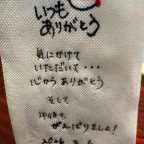 いつも
ありがとう
気にかけて
いただいて・・・
心から ありがとう
そして
がんばりました!